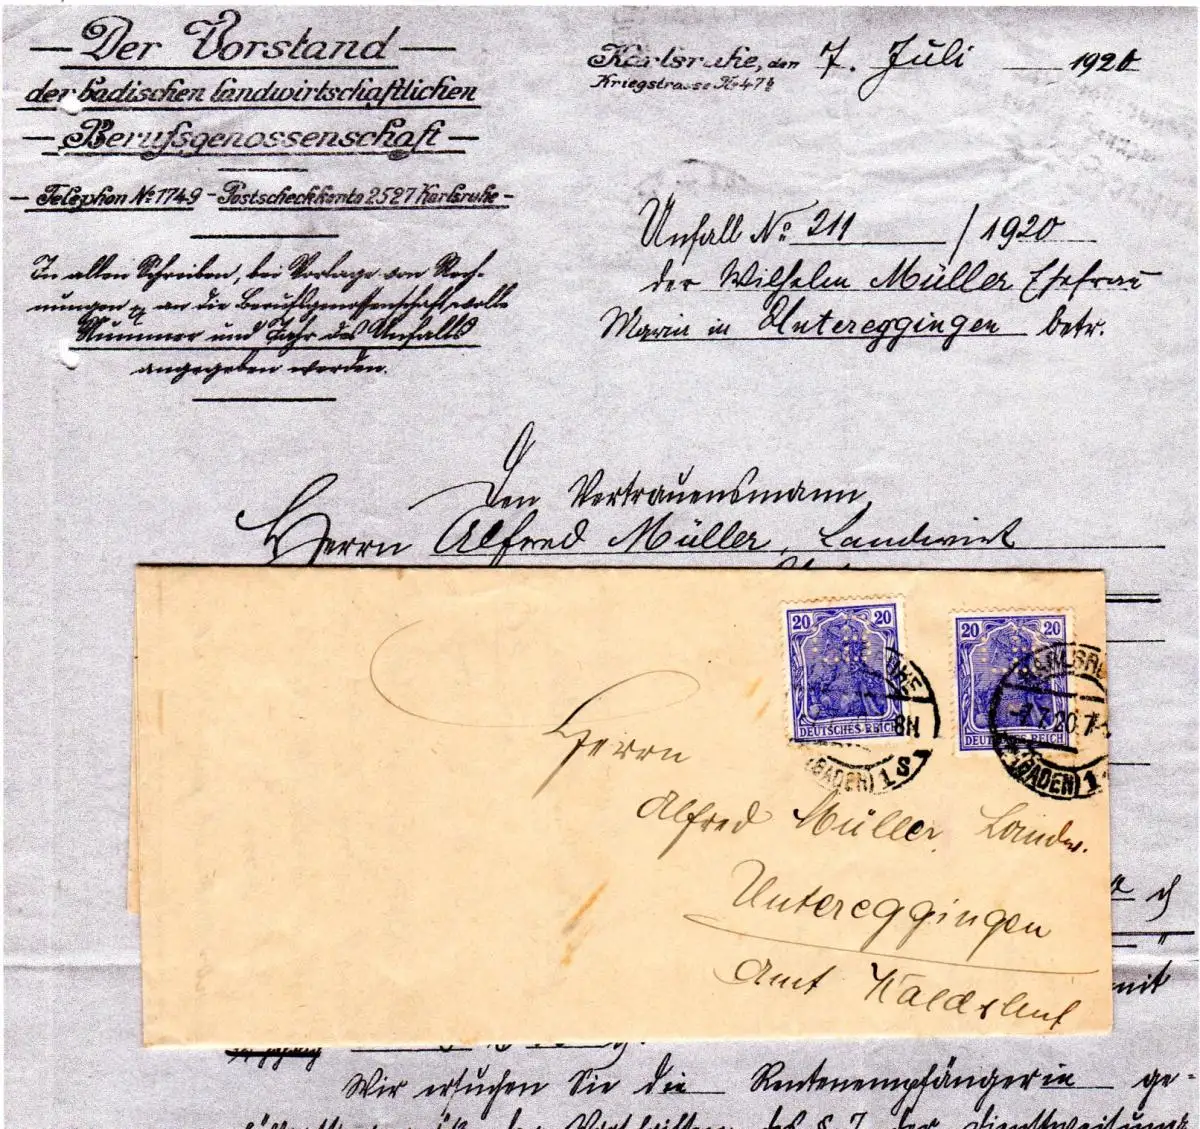 Der Vorstand
der badischen landwirtschaftlichen
Berufsgenossenschaft
Telephon № 1749 - Postscheckkonto 2527 Karlsruhe
In allen Schreiben, bei Vorlage von Rech-
nungen an die Berufsgenossenschaft, wolle
Nummer und Jahr des Unfalls
angegeben werden.
Karlsruhe, den 7. Juli 1920
Kriegstrasse №
Unfall № 211 / 1920
der Wilhelm Müller Ehefrau
Maria in Untereggingen betr.
Den Vertrauensmann
Herrn Alfred Müller, Landwirt
20 20
DEUTSCHES REICH
UHE
8N
(BADEN) 1 S
20 20
DEUTSCHES REICH
KARLSRU
-7.7.20.7-
(BADEN) 1
Herrn
Alfred Müller, Landw.
Untereggingen
Amt Waldshut
mit
Wir ersuchen Sie die Rentenempfängerin ge-
den Vorschriften des § 7 der